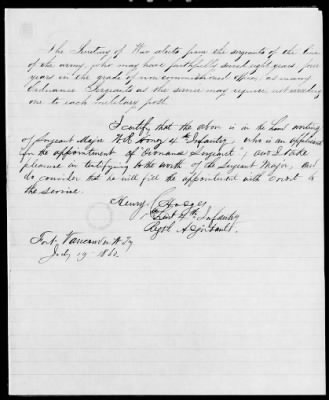 The Secretary of War selects from the sergeants of the line
of the army, who may have faithfully served eight years, four
years in the grade of non-commissioned officer, as many
Ordnance Sergeants as the service may require not exceeding
one to each military post.
I certify that the above is in the hand writing
of Sergeant Major 4th Infantry, who is an applicant
for the appointment of Ordnance Sergeant, and I take
pleasure in testifying to the worth of the Sergeant Major, and
do consider that he will fill the appointment with credit to
the service.
Henry C. Hodges
Lieut 4th Infantry
Regtl Adjutant.
Fort Vancouver W. Ty
July 19